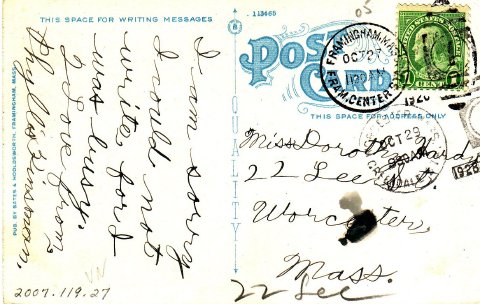 THIS SPACE FOR WRITING MESSAGES
I am sorry
I could not
write, for I
was busy.
Love from,
Phyllis
PUB. BY BATES & HOLDSWORTH, FRAMINGHAM, MASS.
2007.119.27
QUALITY
113465
05
POST CARD
THIS SPACE FOR ADDRESS ONLY
FRAMINGHAM, MASS.
OCT 27
1926
FRAM. CENTER STA.
1 CENT 1
OCT 29
1926
Miss Dorothy Ward
22 Lee St.
Worcester,
Mass.
22 Lee